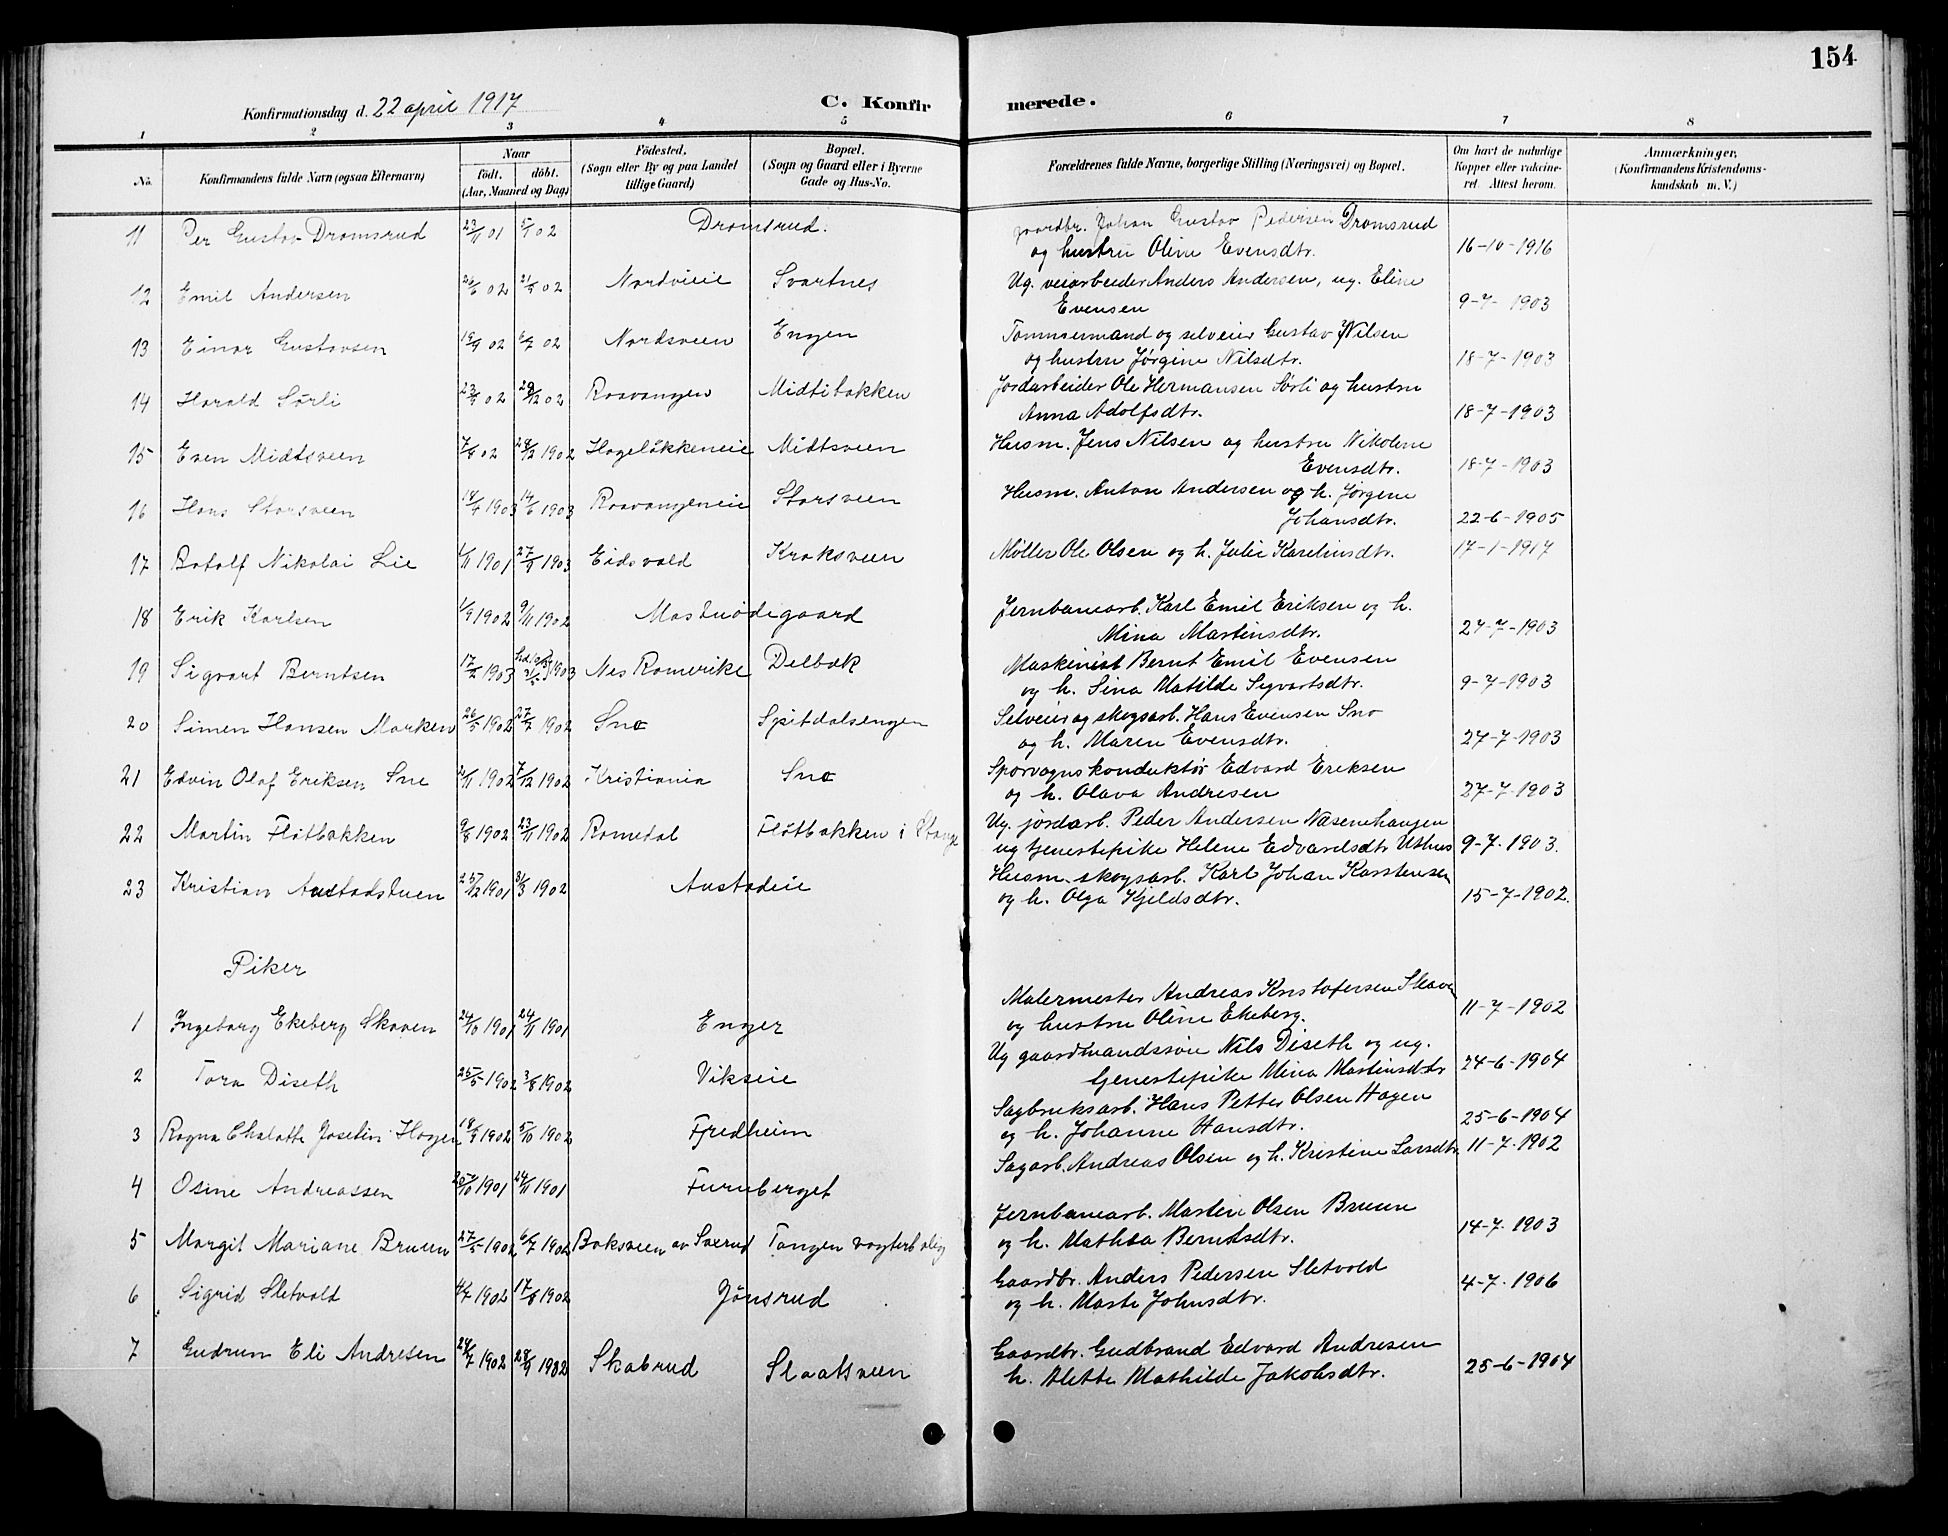 154
Konfirmationsdag d. 22 april 1917
C. Konfirmerede.
1 2 3 4 5 6 7 8
No. Konfirmandens fulde Navn (ogsaa Efternavn) Naar födt. döbt. (Aar, Maaned og Dag) Födested. (Sogn eller By og paa Landet tillige Gaard) Bopæl. (Sogn og Gaard eller i Byerne Gade og Hus-No. Forældrenes fulde Navne, borgerlige Stilling (Næringsvei) og Bopæl. Om havt de naturlige Kopper eller vakcineret. Attest herom. Anmærkninger. (Konfirmandens Kristendomskundskab m. V.)
11 Per Gustav Dromsrud 23/11 01 5/1 02 Dromsrud. gaardbr. Johan Gustav Pedersen Dromsrud
og hustru Oline Evensdtr. 16-10-1916
12 Emil Andersen 02 02 Nordvieie Svartnes Ug. veiarbeider Anders Andersen, ug. Eline
Evensen 9-7-1903
13 Einar Gustavsen 02 02 Nordsveen Engen Tømmermand og selveier Gustav Nilsen
og hustru Jørgine Nilsdtr. 18-7-1903
14 Harald Sørli 02 02 Roavangen Midtibakken Jordarbeider Ole Hermansen Sørli og hustru
Anna Adolfsdtr. 18-7-1903
15 Even Midtsveen 02 28/12 1902 Hageløkkeneie Midtsveen Husm. Jens Nilsen og hustru Nikoline
Evensdtr. 18-7-1903
16 Hans Storsveen 1903 14/6 1903 Roavangeneie Storsveen Husm. Anton Andersen og h. Jørgine
Johansdtr. 22-6-1905
17 Botolf Nikolai Lie 1901 1903 Eidsvold Kroksveen Møller Ole Olsen og h. Julie Karelinsdtr. 17-1-1917
18 Erik Karlsen 1/9 1902 9/11 1902 Mostuødegaard Jernbanearb. Karl Emil Eriksen og h.
Mina Martinsdtr. 24-7-1903
19 Sigvart Berntsen 17/2 1903 1903 Nes Romerike Delbæk Maskinist Bernt Emil Evensen
og h. Sina Matilde Sigvartsdtr. 9-7-1903
20 Simen Hansen Morken 26/5 1902 27/7 1902 Sno Spitdalsengen Selveier og skogsarb. Hans Evensen Sno
og h. Maren Evensdtr. 27-7-1903
21 Edvin Olaf Eriksen Sne 1902 7/12 1902 Kristiania Sno Sporvognskonduktør Edvard Eriksen
og h. Olava Andresen 27-7-1903
22 Martin Fløtbakken 9/8 1902 23/11 1902 Romedal Fløtbakken i Stange Ug. jordarb. Peder Andersen Næsenehaugen
ug tjenestepike Helene Edvardsdtr Uthus 9-7-1903.
23 Kristian Austadstuen 25/12 1901 31/3 1902 Austadeie Husm. skogsarb. Karl Johan Karstensen
og h. Olga Kjeldsdtr. 15-7-1902.
Piker
1 Ingeborg Ekeberg Skaven 24/10 1901 24/11 1901 Enger Malermester Andreas Kristofersen Skaven
og hustru Oline Ekeberg. 11-7-1902
2 Tora Diseth 25/5 1902 3/8 1902 Vikseie Ug gaardmandssøn Nils Diseth og ug.
tjenestepike Mina Martinsdtr 24-6-1904
3 Ragna Chalotte Josefin Hagen 1902 5/10 1902 Fredheim Sagbruksarb. Hans Petter Olsen Hagen
og h. Johanne Hansdtr. 25-6-1904
4 Osine Andreassen 1901 24/11 1901 Furuberget Sagarb. Andreas Olsen og h. Kristine Larsdtr. 11-7-1902
5 Margit Mariane Bruun 27/5 1902 6/7 1902 Baksveen av Sverud Tangen vogterbolig Jernbanearb. Martin Olsen Bruun
og h. Mathea Berntsdtr. 14-7-1903
6 Sigrid Sletvold 1902 17/8 1902 Jønsrud Gaardbr. Anders Pedersen Sletvold
og h. Marte Johnsdtr. 4-7-1906
7 Gudrun Eli Andresen 1902 28/9 1902 Skabrud Slaatsveen Gaardbr. Gudbrand Edvard Andresen
h. Alette Mathilde Jakobsdtr. 25-6-1904